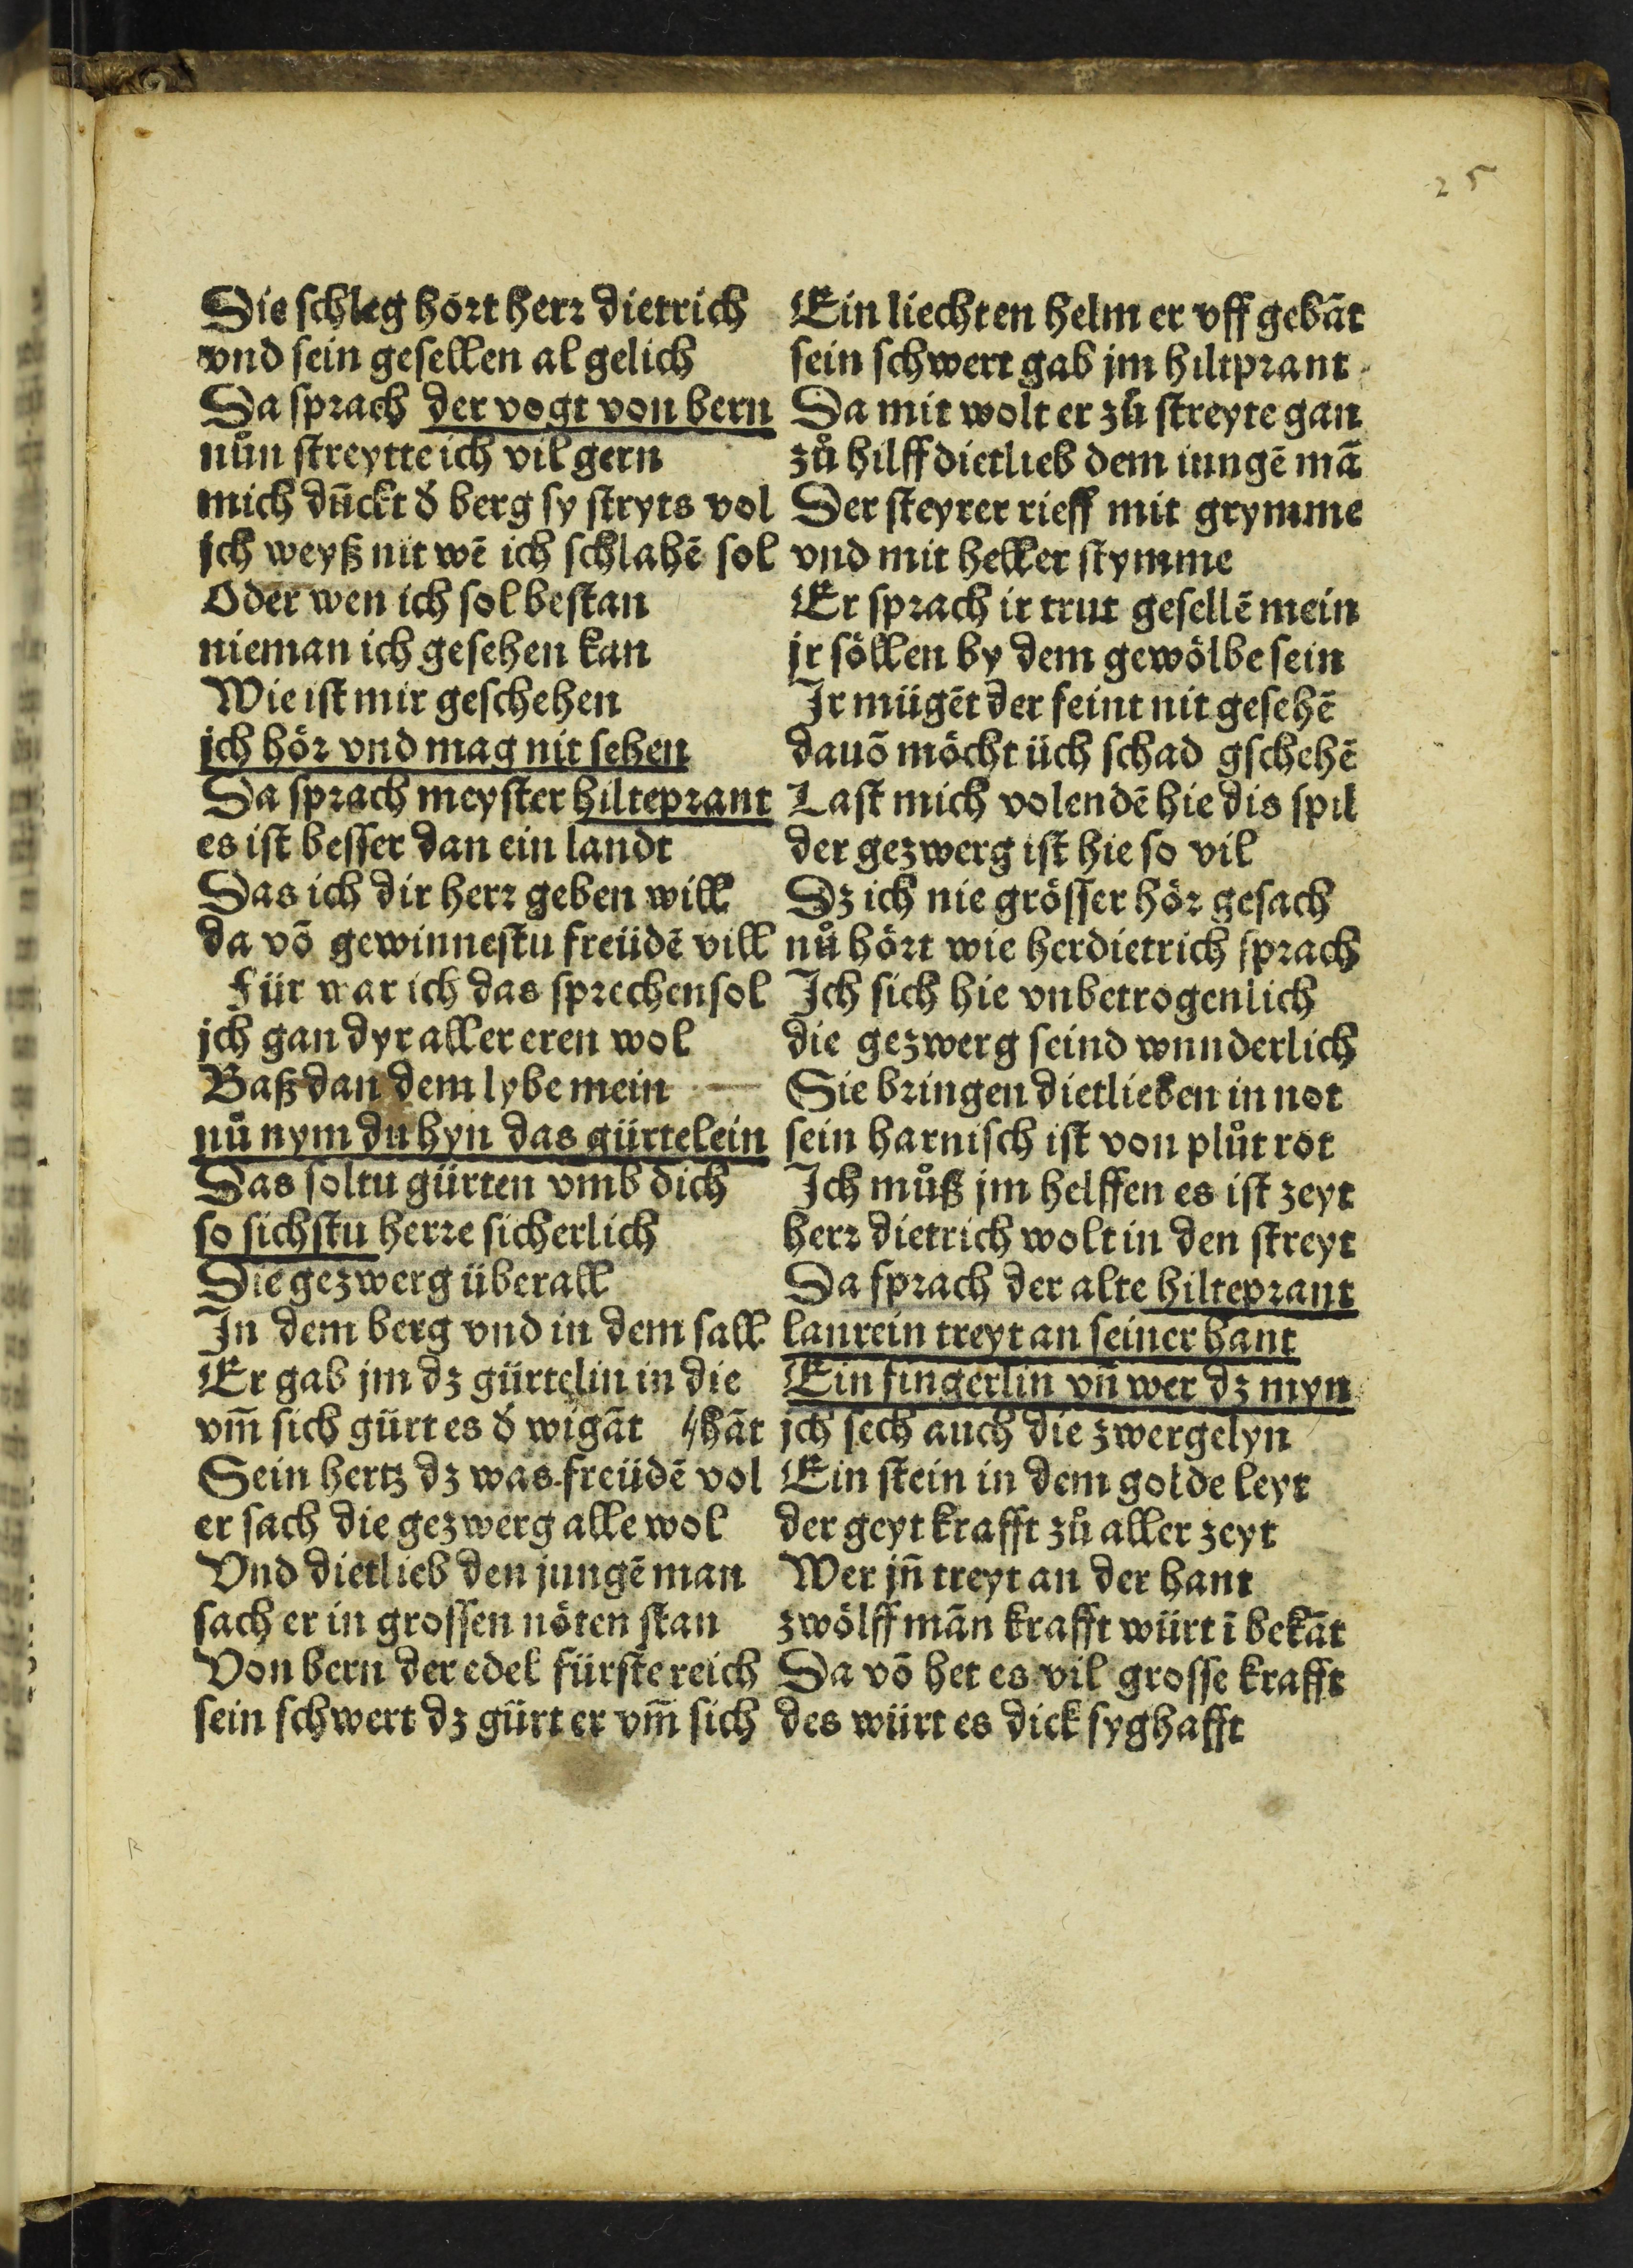 25
Die schleg hört herr dietrich
vnd sein gesellen al gelich
Da sprach der vogt von bern
nůn streytte ich vil gern
mich dūckt d̕ berg sy stryts vol
jch weyß nit wē ich schlahē sol
Oder wen ich sol bestan
nieman ich gesehen kan
Wie ist mir geschehen
ich hör vnd mag nit sehen
Da sprach meyster hilteprant
es ist besser dan ein landt
Das ich dir herr geben will
da vō gewinnestu freüdē vill
Für war ich das sprechen sol
jch gan dyr aller eren wol
Baß dan dem lybe mein
nů nym du hyn das gürtelein
Das soltu gürten vmb dich
so sichstu herre sicherlich
Die gezwerg überall
In dem berg vnd in dem sall
Er gab jm dz gürtelin in die
vm̄ sich gürt es d̕ wigāt hāt
Sein hertz dz was freüdē vol
er sach die gezwerg alle wol
Vnd dietlieb den jungē man
sach er in grossen nöten stan
Von bern der edel fürste reich
sein schwert dz gürt er vm̄ sich
Ein liechten helm er vff gebāt
sein schwert gab jm hiltprant
Da mit wolt er zů streyte gan
zů hilff dietlieb dem iungē mā
Der steyrer rieff mit grymme
vnd mit heller stymme
Er sprach ir trut gesellē mein
jr söllen by dem gewölbe sein
Ir mügēt der feint nit gesehē
dauō möcht üch schad gschehē
Last mich volendē hie dis spil
der gezwerg ist hie so vil
Dz ich nie grösser hör gesach
nů hört wie herdietrich sprach
Ich sich hie vnbetrogenlich
die gezwerg seind wunderlich
Sie bringen dietlieben in not
sein harnisch ist von plůt rot
Ich můß jm helffen es ist zeyt
herr dietrich wolt in den streyt
Da sprach der alte hilteprant
laurein treyt an seiner hant
Ein fingerlin vn̄ wer dz myn
jch sech auch die zwergelyn
Ein stein in dem golde leyt
der geyt krafft zů aller zeyt
Wer jn̄ treyt an der hant
zwölff mān krafft würt ī bekāt
Da vō het es vil grosse krafft
des würt es dick syghafft